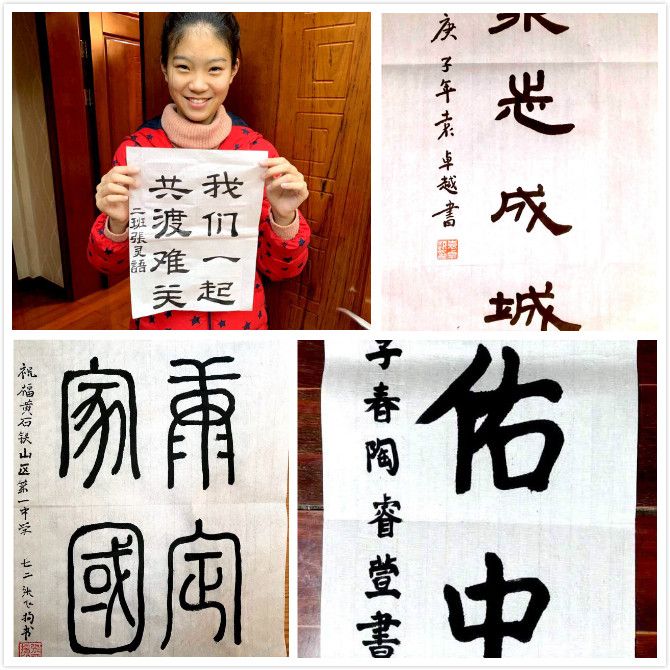 我们一起
共渡难关
二班張灵語
志成城
庚子年袁卓越書
定
家國
祝福黄石铁山区第一中学 七二 飞书
佑中
子春陶睿萱書